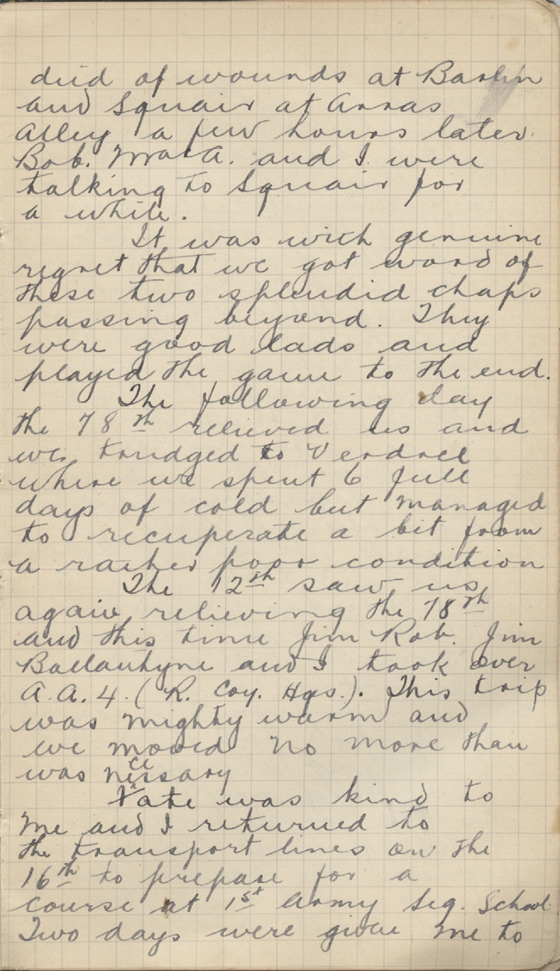 died of wounds at Barlin
and Squair at Arras
Alley a few hours later.
Bob. MacA. and I were
talking to Squair for
a while.
It was with genuine
regret that we got word of
these two splendid chaps
passing beyond. They
were good lads and
played the game to the end.
The following day
the 78th relieved us and
we trudged to Verdrel
where we spent 6 full
days of cold but managed
to recuperate a bit from
a rather poor condition
The 12th saw us
again relieving the 78th
and this time Jim Rob. Jim
Ballantyne and I took over
A.A.4. (R. Coy. Hqs.). This trip
was mighty warm and
we moved no more than
was necessary
Fate was kind to
me and I returned to
the transport lines on the
16th to prepare for a
course at 1st Army Sig. School
Two days were given me to